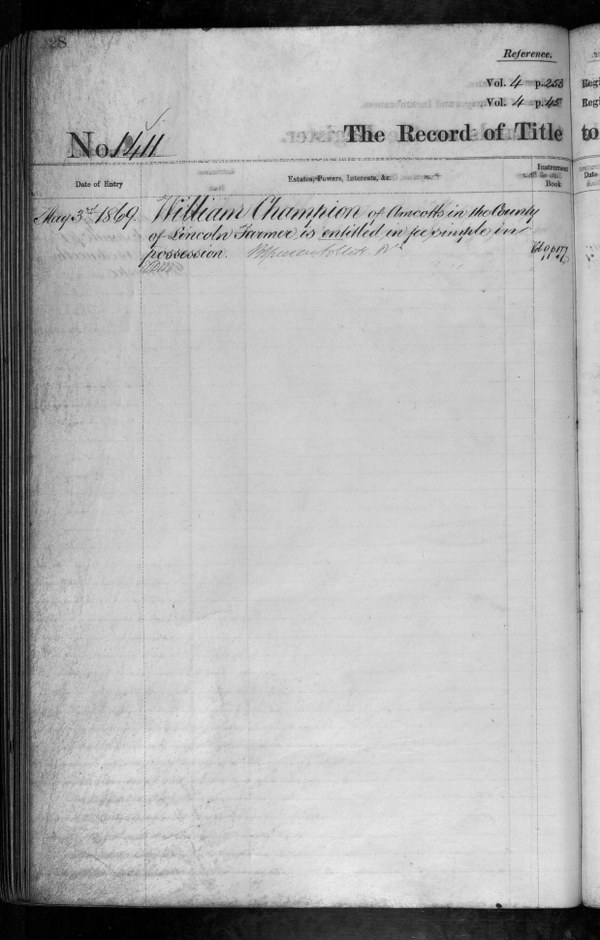 28
Reference.
Vol. 4 p. 258
Vol. 4 p. 45
No. 1411 The Record of Title
Date of Entry Estates, Powers, Interests, &c. Instrument Book
May 3rd 1869. William Champion of Amcotts in the County
of Lincoln Farmer is entitled in fee simple in
possession.
Regi
Regi
to
Date